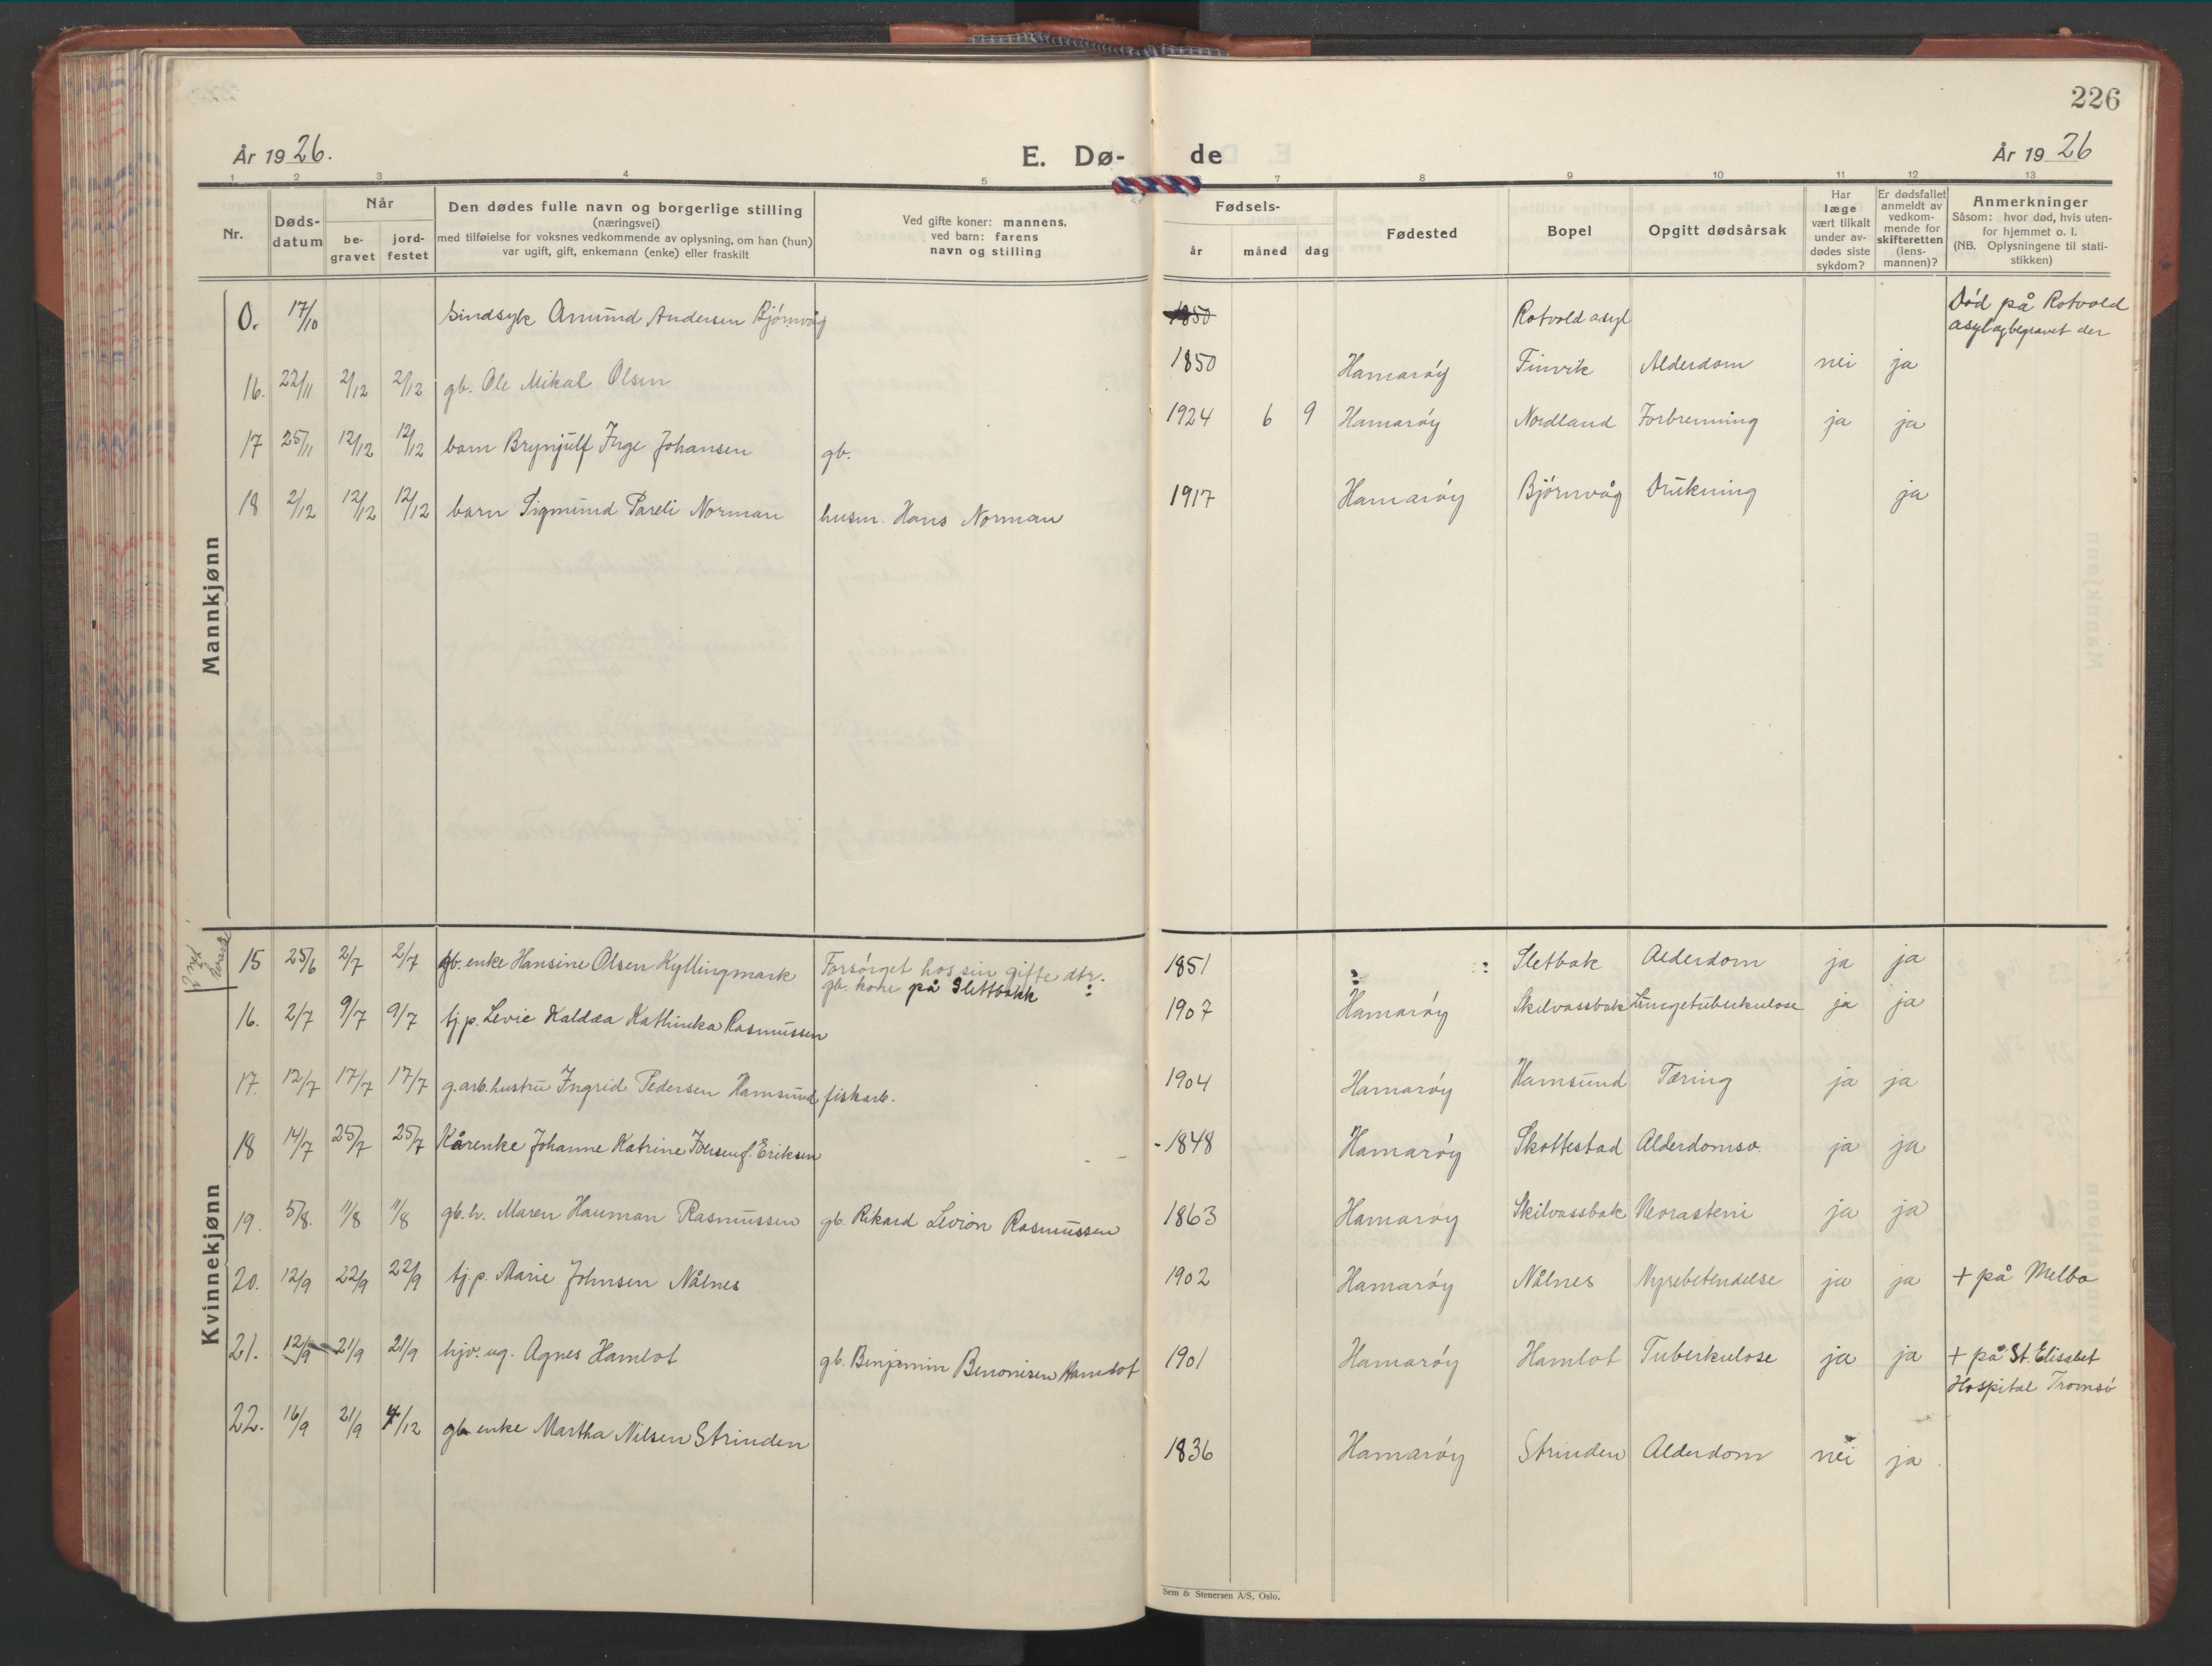 226
År 1926.
E. Dø-
de
År 1926
1 2 3 4 5 7 8 9 10 11 12 13
Nr.
Døds-
datum
Når
be-
gravet
jord-
festet
Den dødes fulle navn og borgerlige stilling
(næringsvei)
med tilføielse for voksnes vedkommende av oplysning, om han (hun)
var ugift, gift, enkemann (enke) eller fraskilt
Ved gifte koner: mannens,
ved barn: farens
navn og stilling
Fødsels-
år måned dag
Fødested
Bopel
Opgitt dødsårsak
Har
læge
vært tilkalt
under av-
dødes siste
sykdom?
Er dødsfallet
anmeldt av
vedkom-
mende for
skifteretten
(lens-
mannen)?
Anmerkninger
Såsom: hvor død, hvis uten-
for hjemmet o. l.
(NB. Oplysningene til stati-
stikken)
Mannkjønn
0. 17/10 Sindsyk Amund Andersen Bjørnvåg 1850 Rotvold asyl Død på Rotvold
asyl og begravet der
16. 22/11 2/12 2/12 gb. Ole Mikal Olsen 1850 Hamarøy Finvik Alderdom nei ja
17 25/11 12/12 12/12 barn Brynjulf Inge Johansen gb. 1924 6 9 Hamarøy Nordland Forbrenning ja ja
18 2/12 12/12 12/12 barn Sigmund Pareli Norman husm. Hans Norman 1917 Hamarøy Bjørnvåg Drukning ja
Kvinnekjønn
15 25/6 2/7 2/7 gb. enke Hansine Olsen Kyllingmark Forsørget hos sin gifte dtr.
gb. kone på Slettbakk : 1851 : : Sletbak Alderdom ja ja
16. 2/7 9/7 9/7 tj.p. Levie Kaldæa Kathinka Rasmussen 1907 Hamarøy Skilvassbak Lungetuberkulose ja ja
17. 12/7 17/7 17/7 g.arb.hustru Ingrid Pedersen Hamsund fiskarb. 1904 Hamarøy Hamsund Tæring ja ja
18 14/7 25/7 25/7 Kårenke Johanne Katrine Iversen f. Eriksen - 1848 Hamarøy Skottestad Alderdomssv. ja ja
19. 5/8. 11/8 11/8 gb.h. Maren Hauman Rasmussen gb. Rikard Levion Rasmussen 1863 Hamarøy Skilvassbak Nevrasteni ja ja
20. 12/9 22/9 22/9 tj.p. Marie Johnsen Nålnes 1902 Hamarøy Nålnes Nyrebetendelse ja ja + på Melbo
21. 12/9 21/9 21/9 hjv. ug. Agnes Hamlot gb. Benjamin Benonisen Hamlot 1901 Hamarøy Hamlot Tuberkulose ja ja + på St. Elisabet
Hospital Tromsø
22. 16/9 21/9 4/12 gb enke Martha Nilsen Strinden 1836 Hamarøy Strinden Alderdom nei ja
Sem & Stenersen A/S, Oslo.